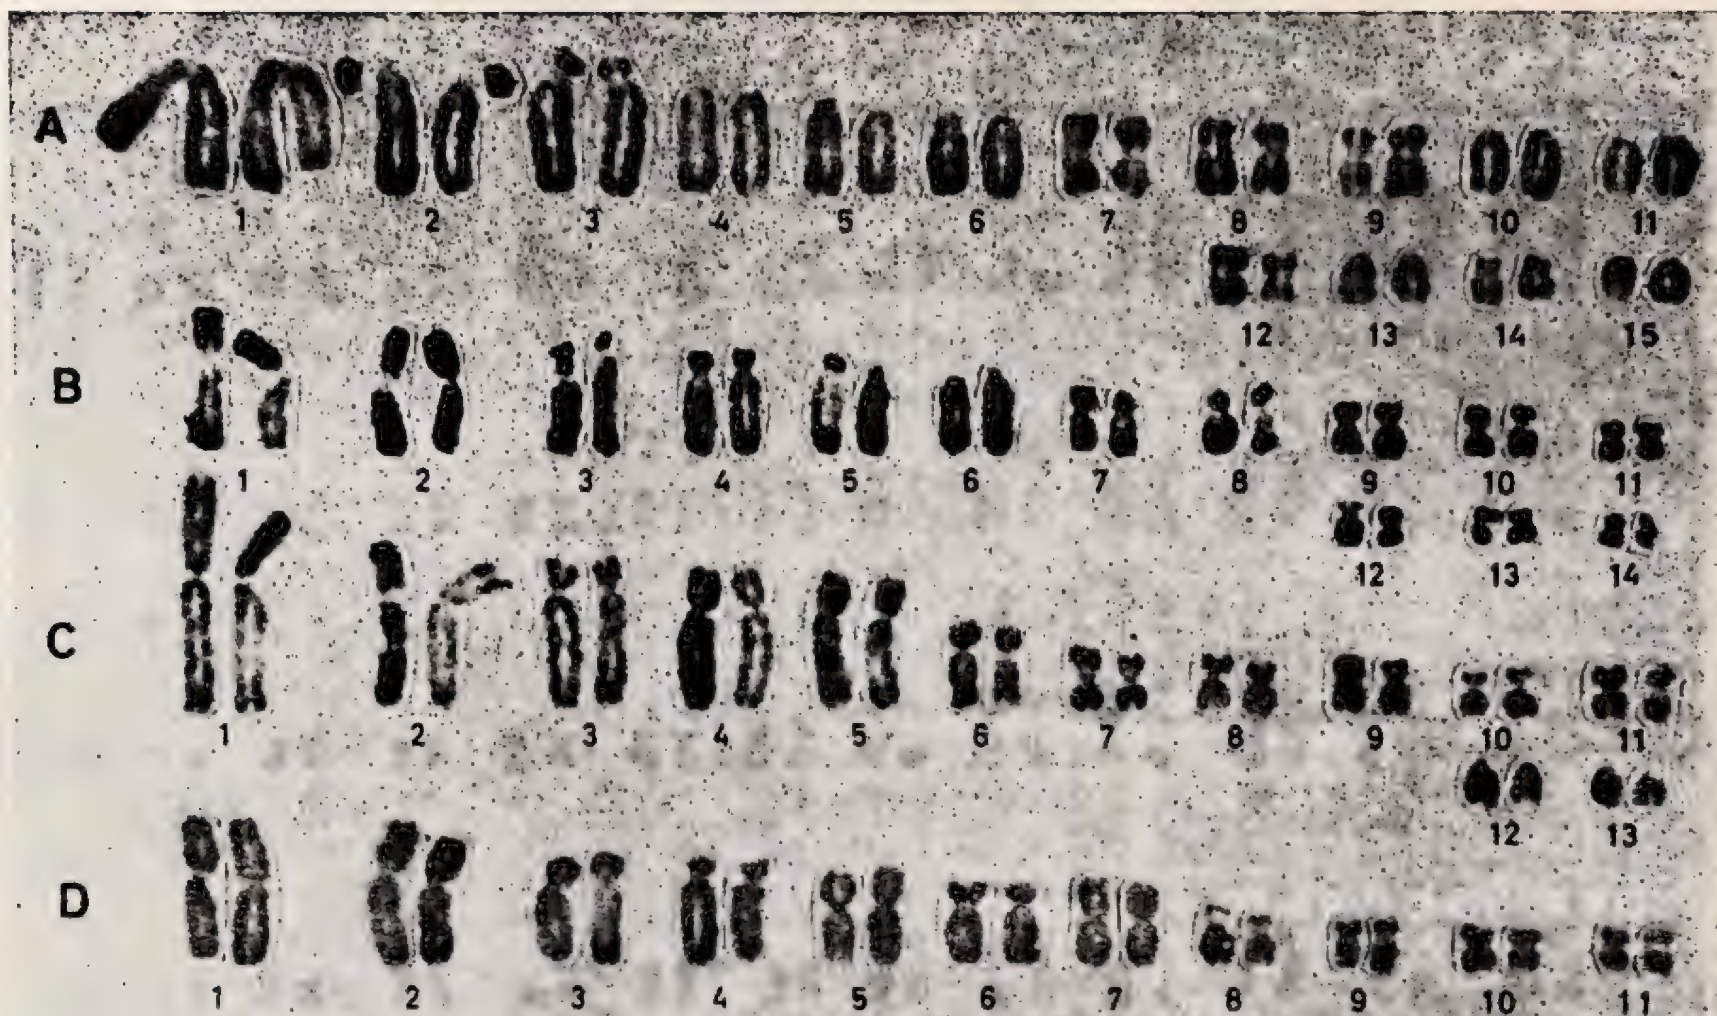 A
1 2 3 4 5 6 7 8 9 10 11
12 13 14 15
B
1 2 3 4 5 6 7 8 9 10 11
12 13 14
C
1 2 3 4 5 6 7 8 9 10 11
12 13
D
1 2 3 4 5 6 7 8 9 10 11